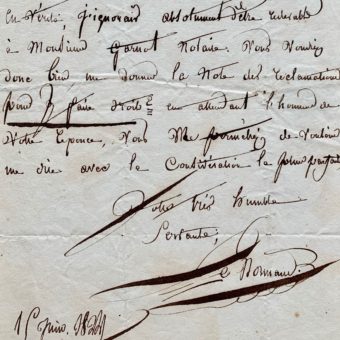 En Vérité j'ignorais absolument d'être redevable
à Monsieur Garnot Notaire. Vous Voudrez
donc bien me donner la Note des réclamations
pour y faire en attendant l'honneur de
Votre réponce, Vous de Vouloir
me avec la Considération la plus parfaite
Votre très humble
Servante,
Le Normand.
15 Juin. 1824